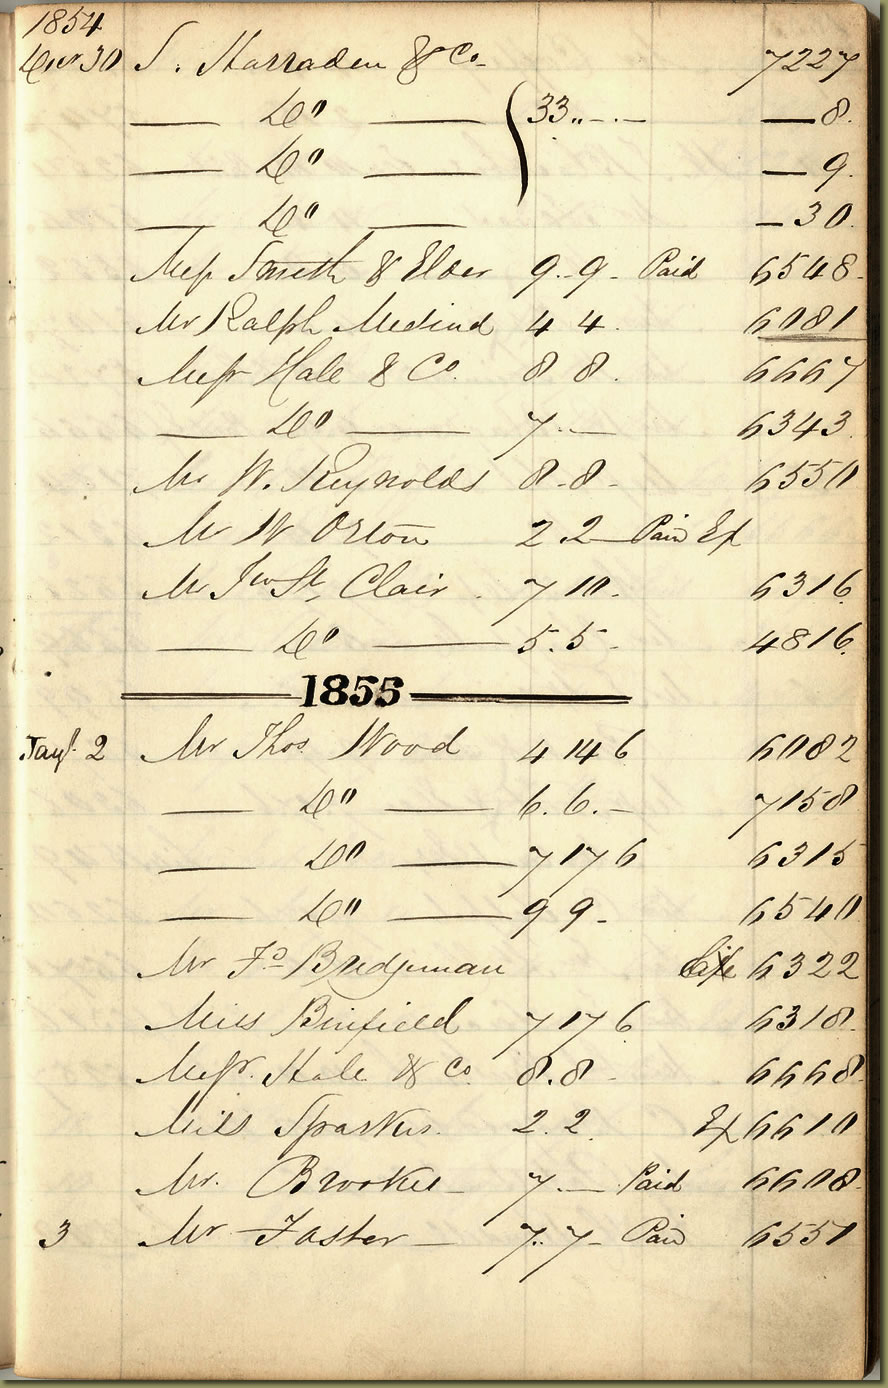 1854
Decr 30 S. Harraden & Co. 7227
Do 33 " - . - 8.
Do - 9.
Do - 30
Messrs Smith & Elder 9 . 9 - Paid 6548
Mr Ralph 4 4 . 6081
Messrs Hale & Co. 8 8 . 6667
Do 7 . - 6343
Mr W. Reynolds 8 . 8 - 6550
Mr W Orton 2 2 - Paid Ex
Mr Jno St Clair . 7 10 . 6316
Do 5 . 5 - 4816.
1855
Jany. 2 Mr Thos Wood 4 14 6 6082
Do 6 . 6 . - 7150
Do 7 17 6 6315
Do 9 9 - 6540
Mr Fs Bridgeman 6322
Miss Binfield 7 17 6 6318
Messr. Hale & Co 8 . 8 - 6668
Miss Sparkes. 2 . 2 . Ex 6610
Mr. Brookes 7 . - Paid 6608
3 Mr Foster - 7 . 7 - Paid 6551